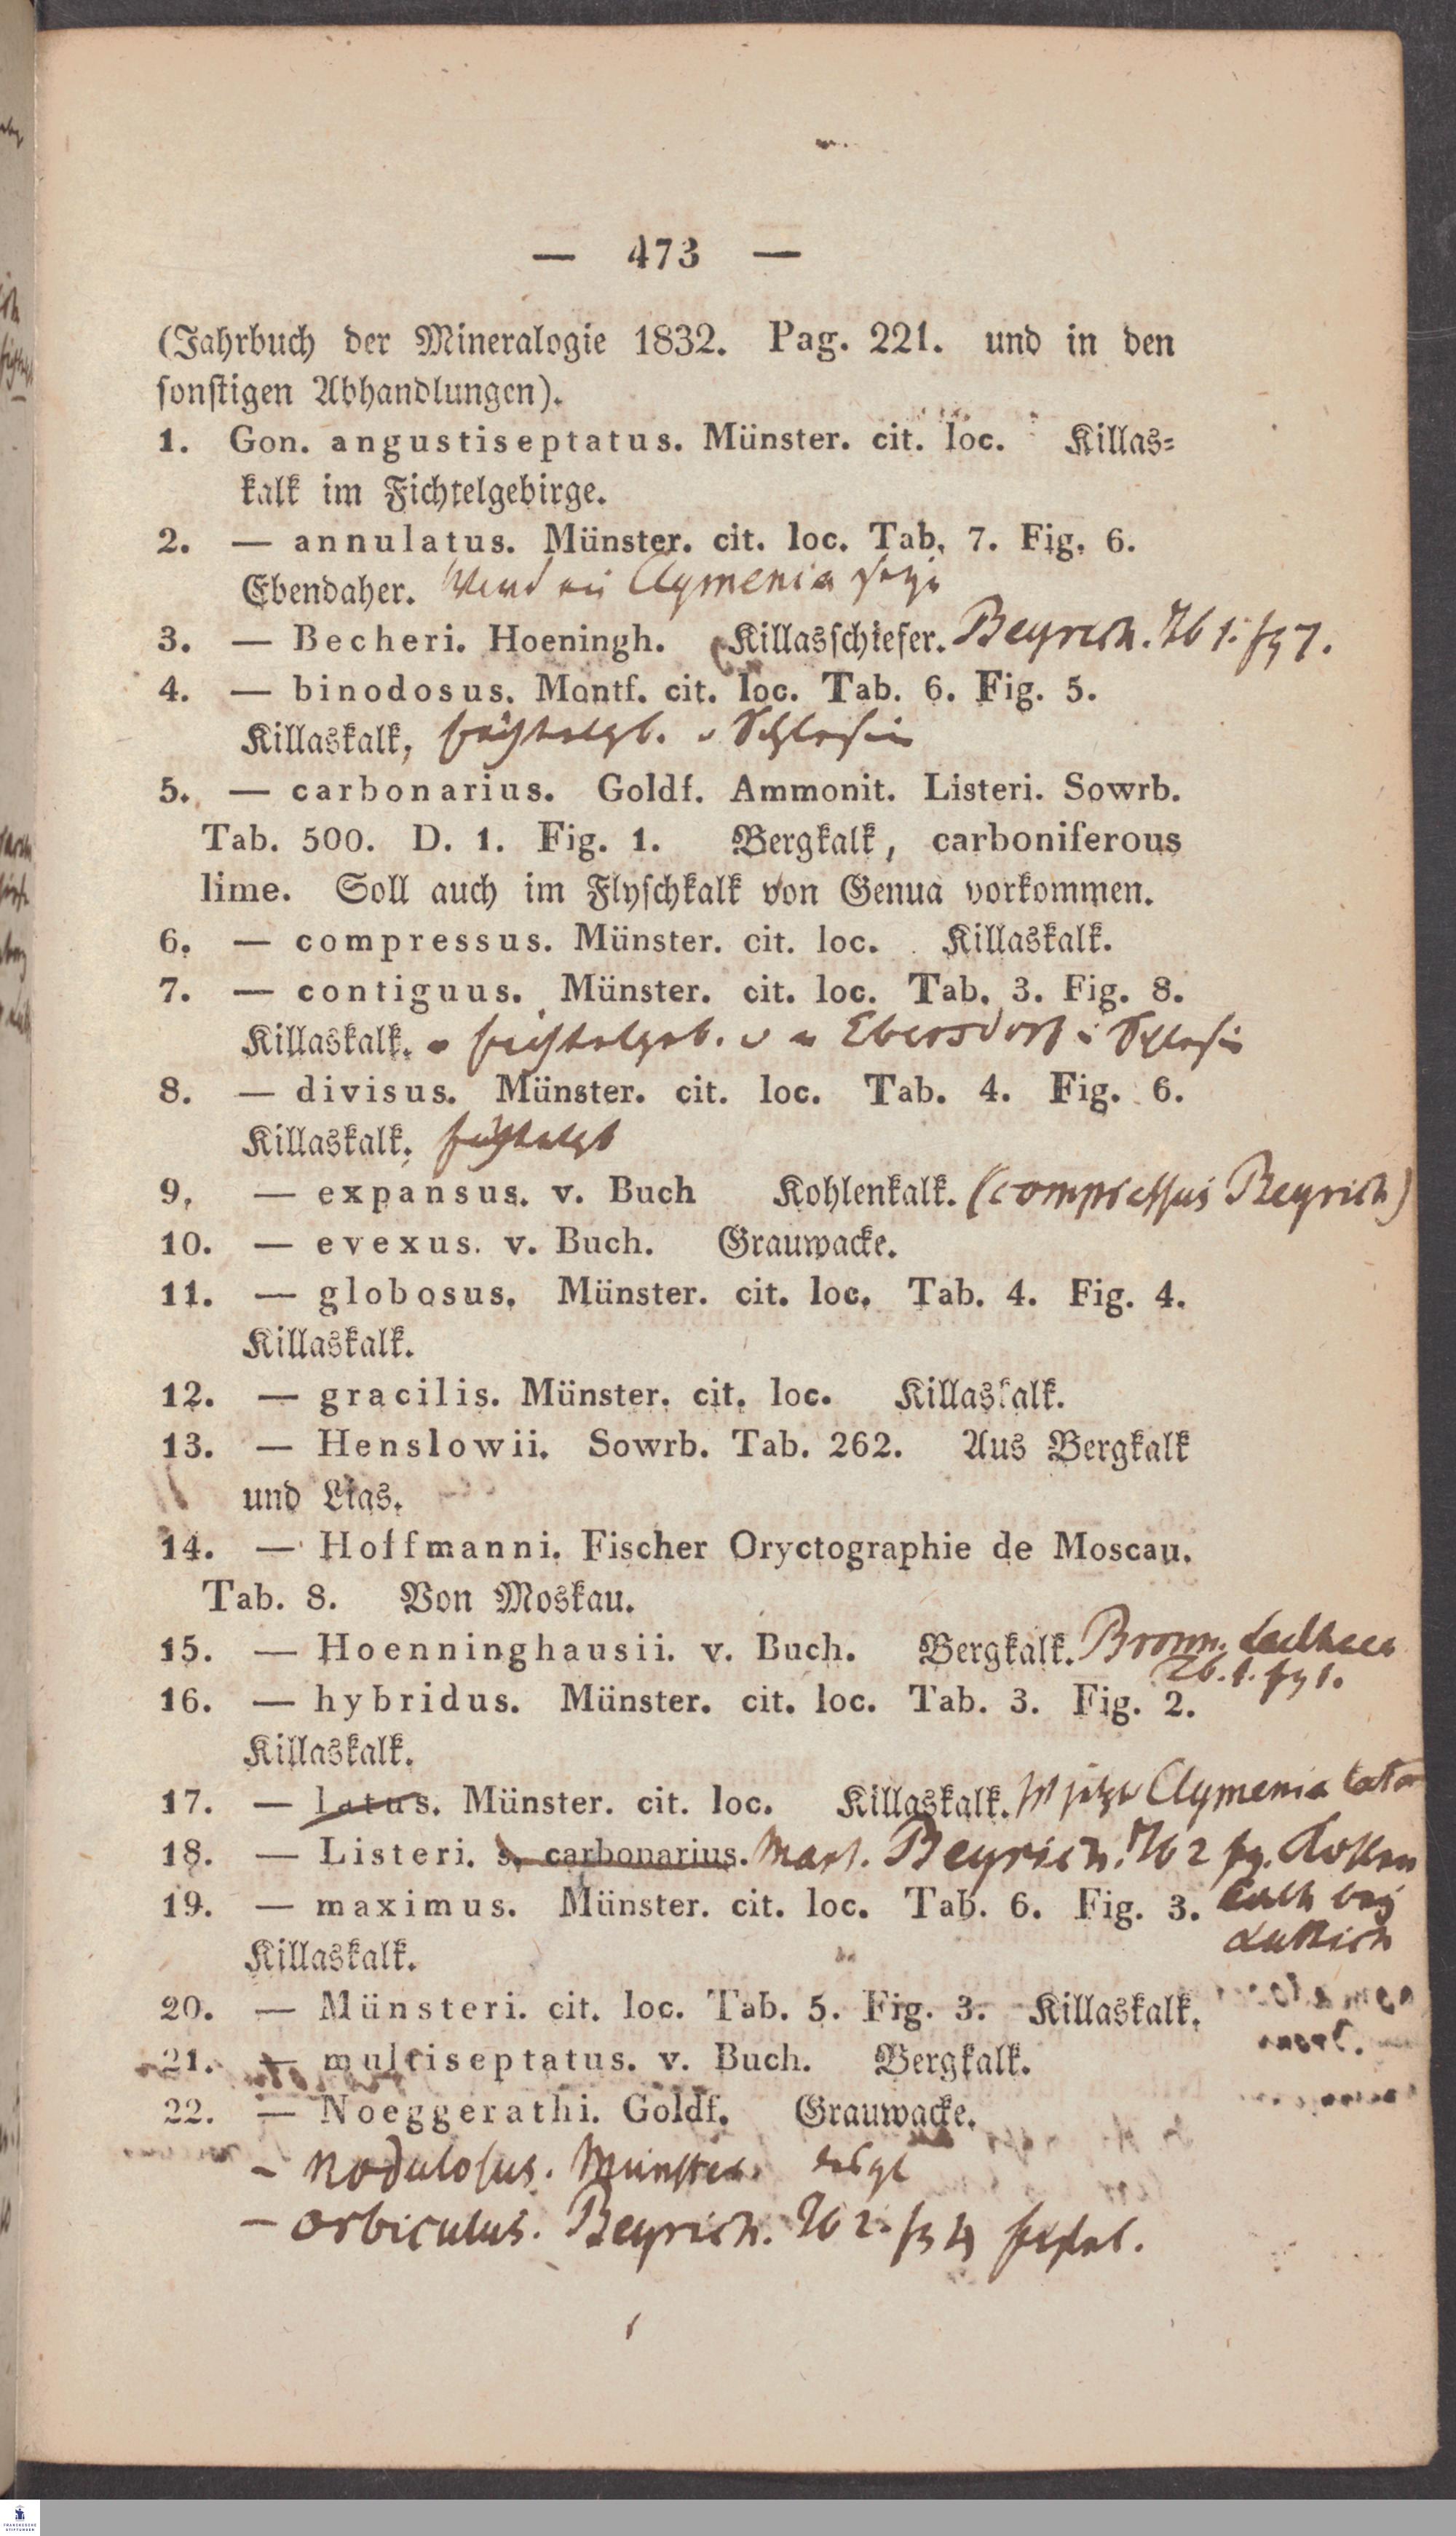 — 473 —
(Jahrbuch der Mineralogie 1832. Pag. 221. und in den
sonstigen Abhandlungen).
1. Gon. angustiseptatus. Münster. cit. loc. Killas-
kalk im Fichtelgebirge.
2. — annulatus. Münster. cit. loc. Tab. 7. Fig. 6.
Ebendaher. Clymenia
3. — Becheri. Hoeningh. Killasschiefer. Beyrich. Tb 1. fg 7.
4. — binodosus. Montf. cit. loc. Tab. 6. Fig. 5.
Killaskalk, Fichtelgb. u Schlesien
5. — carbonarius. Goldf. Ammonit. Listeri. Sowrb.
Tab. 500. D. 1. Fig. 1. Bergkalk, carboniferous
lime. Soll auch im Flyschkalk von Genua vorkommen.
6. — compressus. Münster. cit. loc. Killaskalk.
7. — contiguus. Münster. cit. loc. Tab. 3. Fig. 8.
Killaskalk. Fichtelgeb. u Ebersdorf i Schlesien
8. — divisus. Münster. cit. loc. Tab. 4. Fig. 6.
Killaskalk. Fichtelgb
9. — expansus. v. Buch Kohlenkalk. (compressus Beyrich)
10. — evexus. v. Buch. Grauwacke.
11. — globosus. Münster. cit. loc. Tab. 4. Fig. 4.
Killaskalk.
12. — gracilis. Münster. cit. loc. Killaskalk.
13. — Henslowii. Sowrb. Tab. 262. Aus Bergkalk
und Lias.
14. — Hoffmanni. Fischer Oryctographie de Moscau.
Tab. 8. Von Moskau.
15. — Hoenninghausii. v. Buch. Bergkalk. Bronn.
Tb. 1. fg 1.
16. — hybridus. Münster. cit. loc. Tab. 3. Fig. 2.
Killaskalk.
17. — latus. Münster. cit. loc. Killaskalk. ist jetzt Clymenia lata
18. — Listeri. s. carbonarius. Mart. Beyrich. Tb 2 fg.
19. — maximus. Münster. cit. loc. Tab. 6. Fig. 3. bey
Lüttich
Killaskalk.
20. — Münsteri. cit. loc. Tab. 5. Fig. 3. Killaskalk.
21. — multiseptatus. v. Buch. Bergkalk.
22. — Noeggerathi. Goldf. Grauwacke.
– nodulosus. Münster. desgl
– orbiculus. Beyrich. Tb 2. fg 4